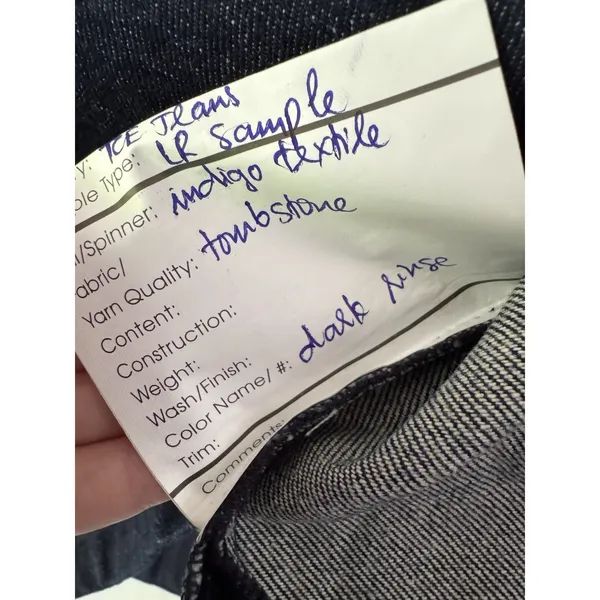 y: TCE Jeans
ple Type: LR Sample
l/Spinner: indigo textile
abric/
Yarn Quality: tombstone
Content:
Construction:
Weight:
Wash/Finish: dark rinse
Color Name/ #:
Trim:
Comments: